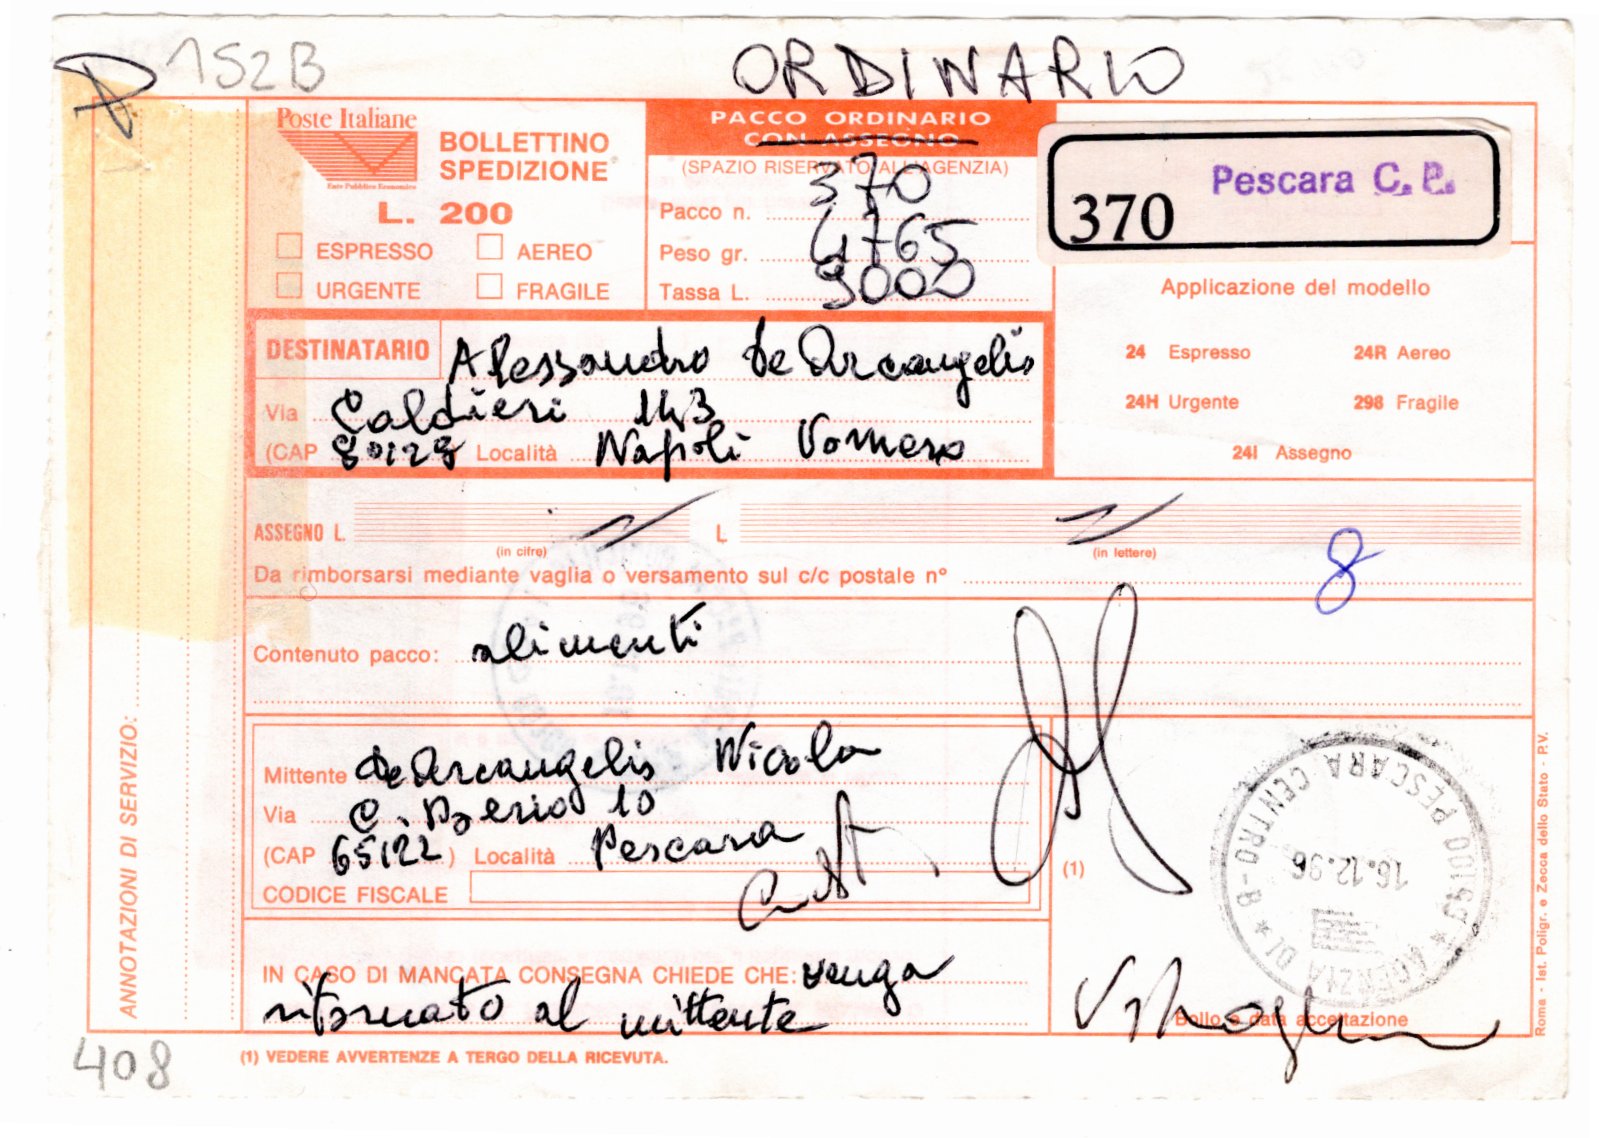 152B
ORDINARIO
Poste Italiane
Ente Pubblico Economico
BOLLETTINO
SPEDIZIONE
L. 200
ESPRESSO AEREO
URGENTE FRAGILE
PACCO ORDINARIO
CON ASSEGNO
(SPAZIO RISERVATO ALL'AGENZIA)
Pacco n. 370
Peso gr. 4765
Tassa L. 9000
370 Pescara C.P.
Applicazione del modello
24 Espresso 24R Aereo
24H Urgente 298 Fragile
24I Assegno
DESTINATARIO Alessandro De Arcangelis
Via Caldieri 143
(CAP 80128 Località Napoli Vomero
ASSEGNO L. (in cifre) L (in lettere)
Da rimborsarsi mediante vaglia o versamento sul c/c postale n°
8
Contenuto pacco: alimenti
Mittente De Arcangelis Nicola
Via C. Berio 10
(CAP 65122) Località Pescara
CODICE FISCALE
IN CASO DI MANCATA CONSEGNA CHIEDE CHE: venga
ritornato al mittente
(1)
65100 PESCARA CENTRO-8 * AGENZIA DI *
16.12.96
Bollo e data accettazione
ANNOTAZIONI DI SERVIZIO:
Roma - Ist. Poligr. e Zecca dello Stato - P.V.
408
(1) VEDERE AVVERTENZE A TERGO DELLA RICEVUTA.